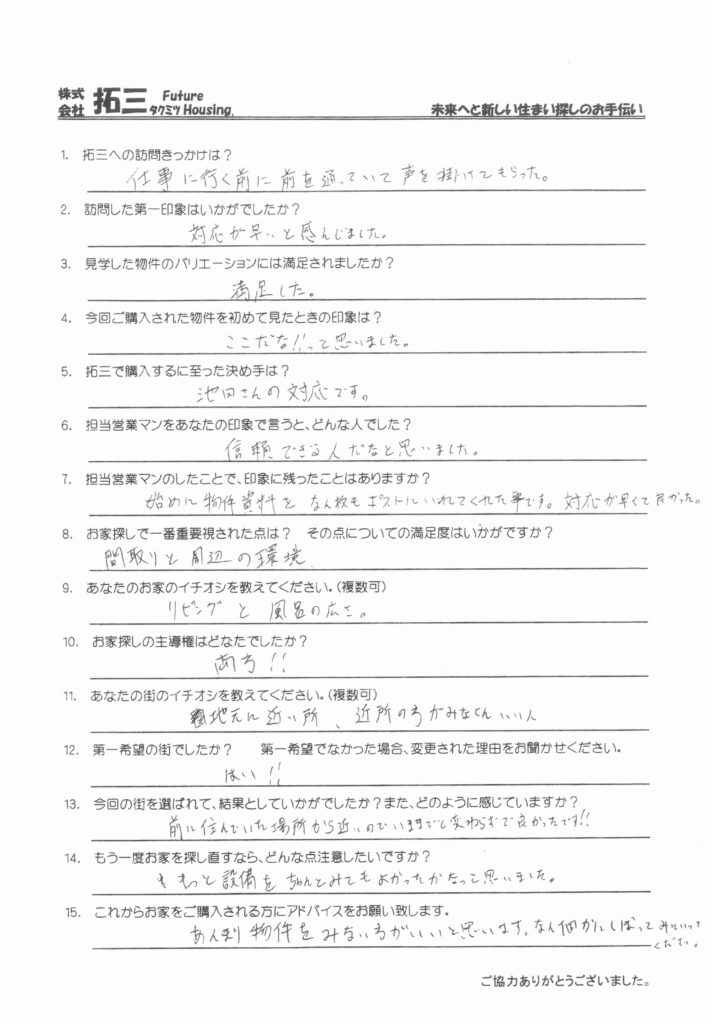 株式会社 拓三 Future タクミツ Housing. 未来へと新しい住まい探しのお手伝い
1. 拓三への訪問きっかけは？
仕事に行く前に前を通っていて声を掛けてもらった。
2. 訪問した第一印象はいかがでしたか？
対応が早いと感んじました。
3. 見学した物件のバリエーションには満足されましたか？
満足した。
4. 今回ご購入された物件を初めて見たときの印象は？
ここだな!!って思いました。
5. 拓三で購入するに至った決め手は？
池田さんの対応です。
6. 担当営業マンをあなたの印象で言うと、どんな人でした？
信頼できる人だなと思いました。
7. 担当営業マンのしたことで、印象に残ったことはありますか？
始めに物件資料をなん枚もポストにいれてくれた事です。対応が早くて良かった。
8. お家探しで一番重要視された点は？ その点についての満足度はいかがですか？
間取りと周辺の環境
9. あなたのお家のイチオシを教えてください。（複数可）
リビングと風呂の広さ。
10. お家探しの主導権はどなたでしたか？
両方!!
11. あなたの街のイチオシを教えてください。（複数可）
地元に近い所、近所の方がみなさんいい人
12. 第一希望の街でしたか？ 第一希望でなかった場合、変更された理由をお聞かせください。
はい!!
13. 今回の街を選ばれて、結果としていかがでしたか？また、どのように感じていますか？
前に住んでいた場所から近いのでいままでと変わらずで良かったです!!
14. もう一度お家を探し直すなら、どんな点注意したいですか？
もっと設備をちゃんとみてもよかったかなって思いました。
15. これからお家をご購入される方にアドバイスをお願い致します。
あんまり物件をみない方がいいと思います。なん個かにしぼってみにいって
ください。
ご協力ありがとうございました。